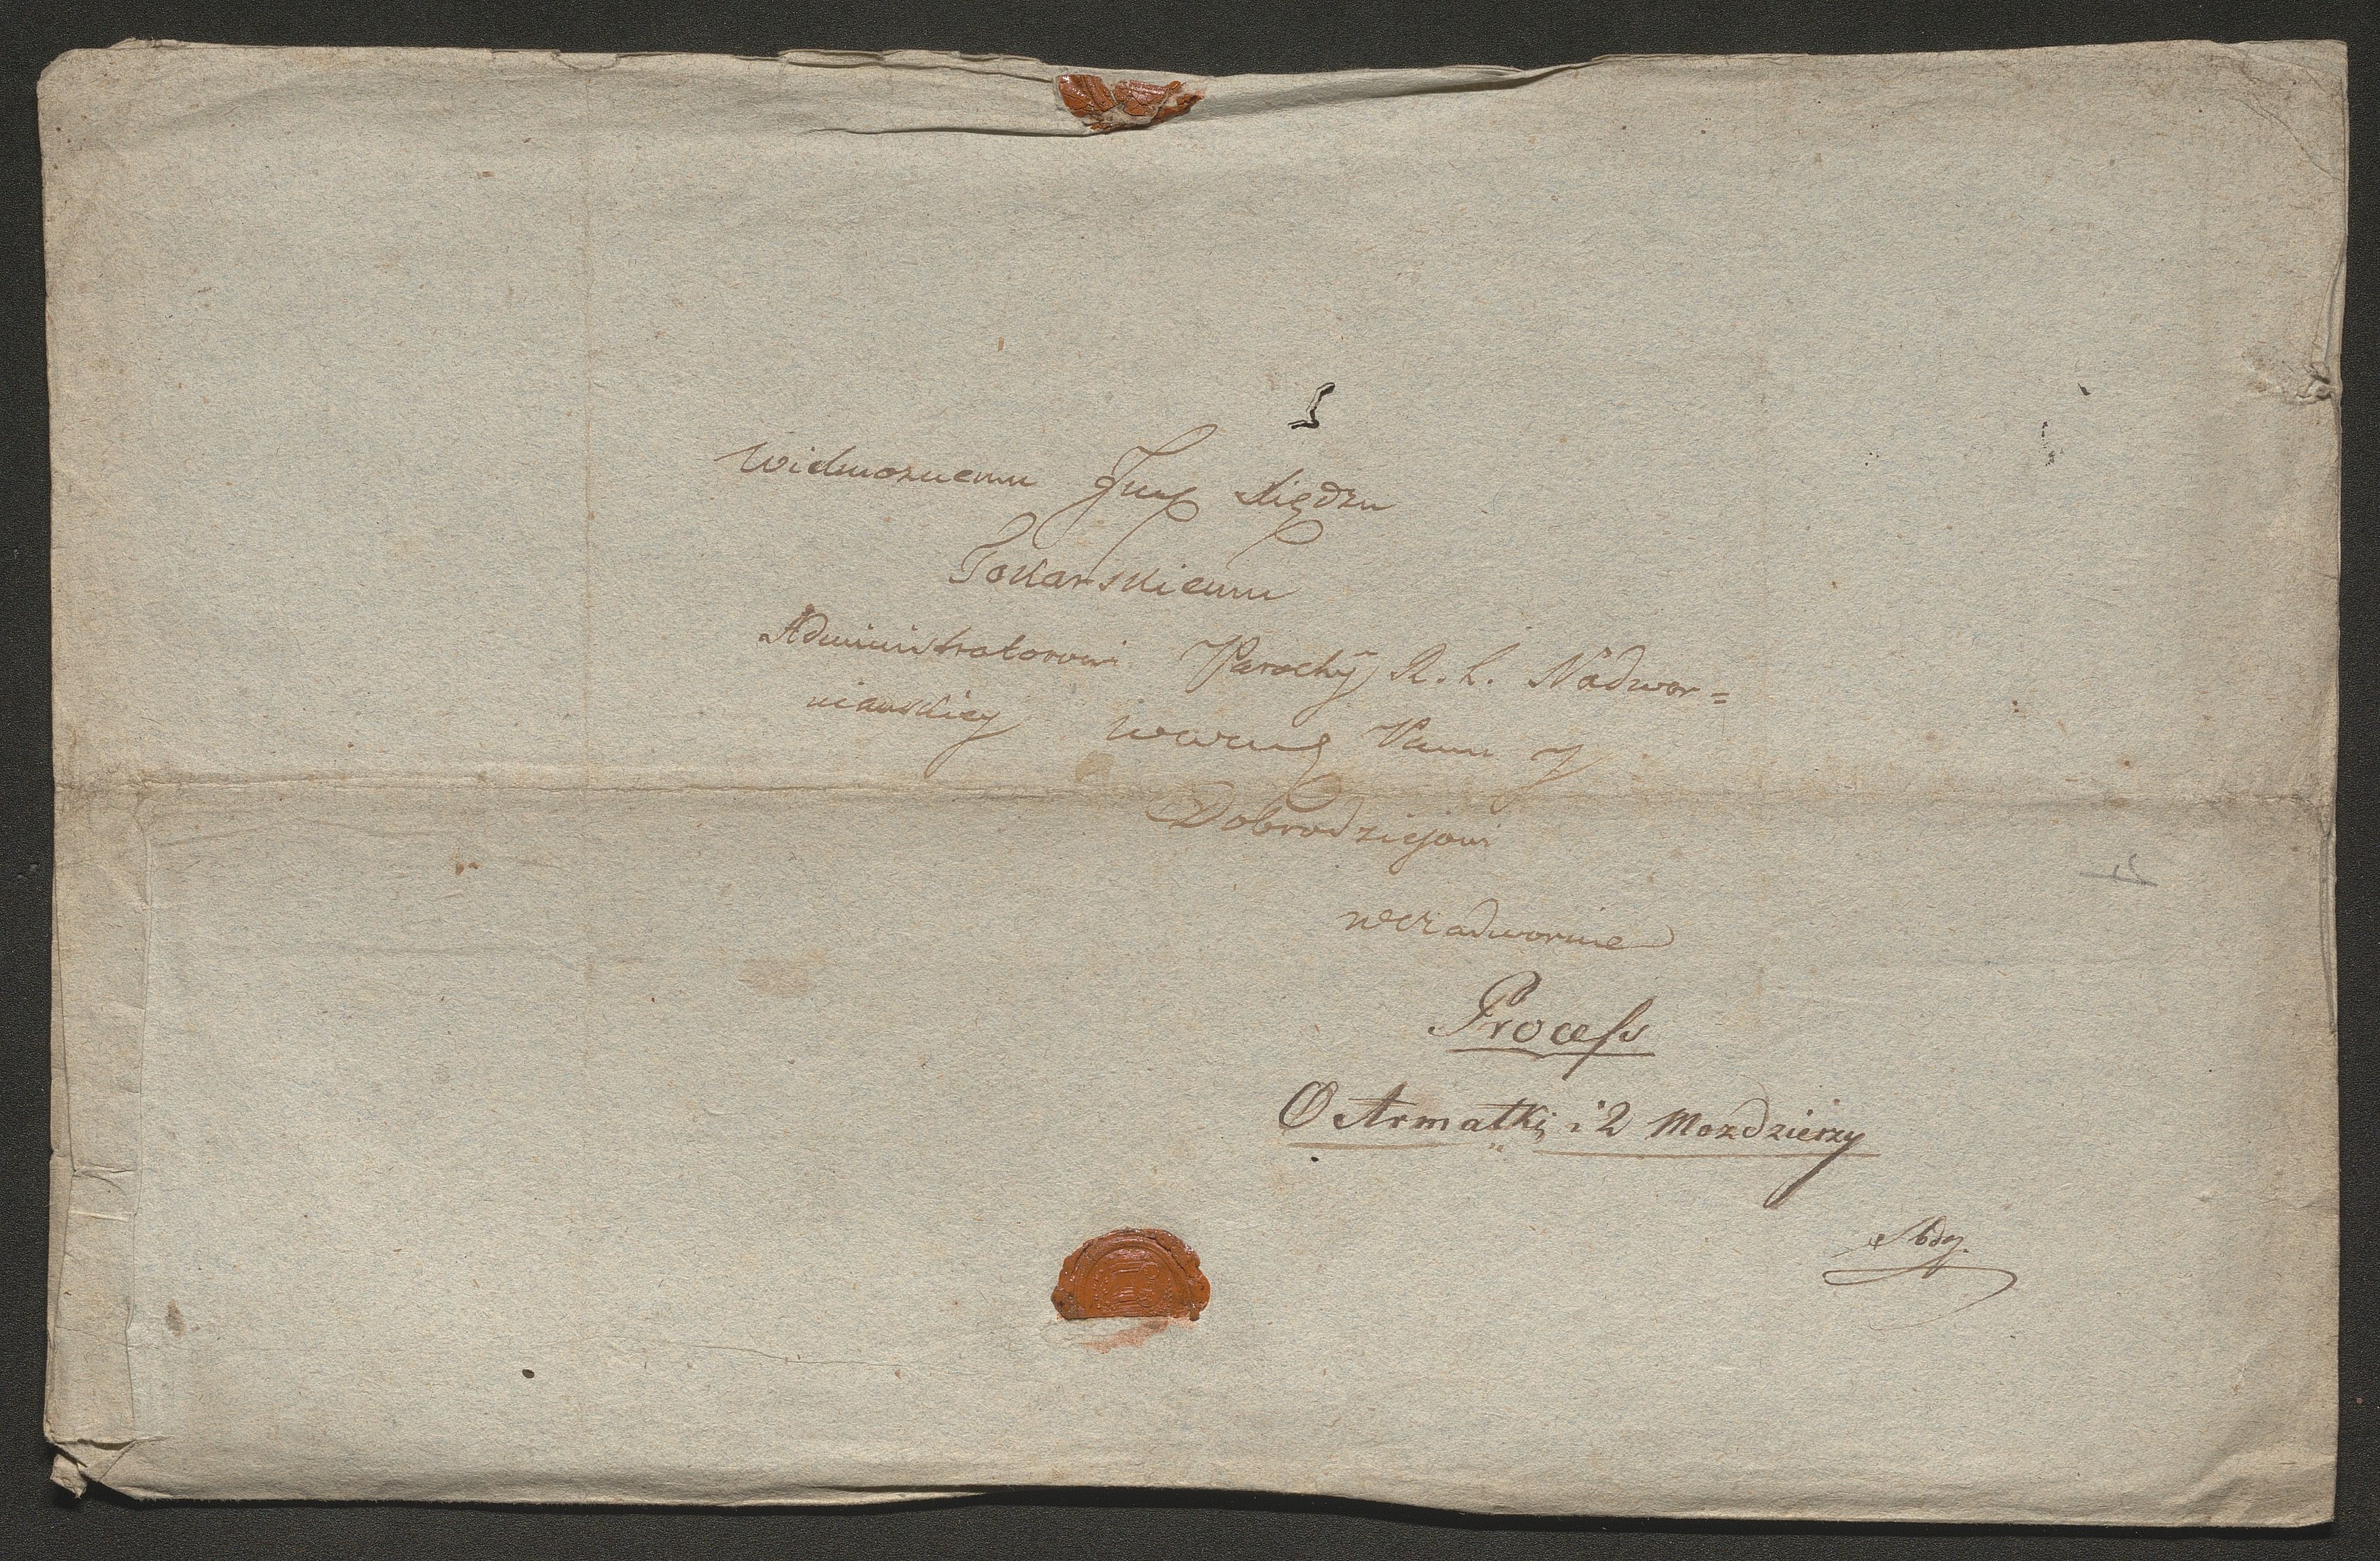 Wielmożnemu Jmę Xiędzu
Tokarskiemu
Administratorowi Parochÿ R. L. Nadwor=
nianskiey Panu y
Dobrodziejowi
w Nadwornie
Process
O Armatki i 2 Mozdzierzy